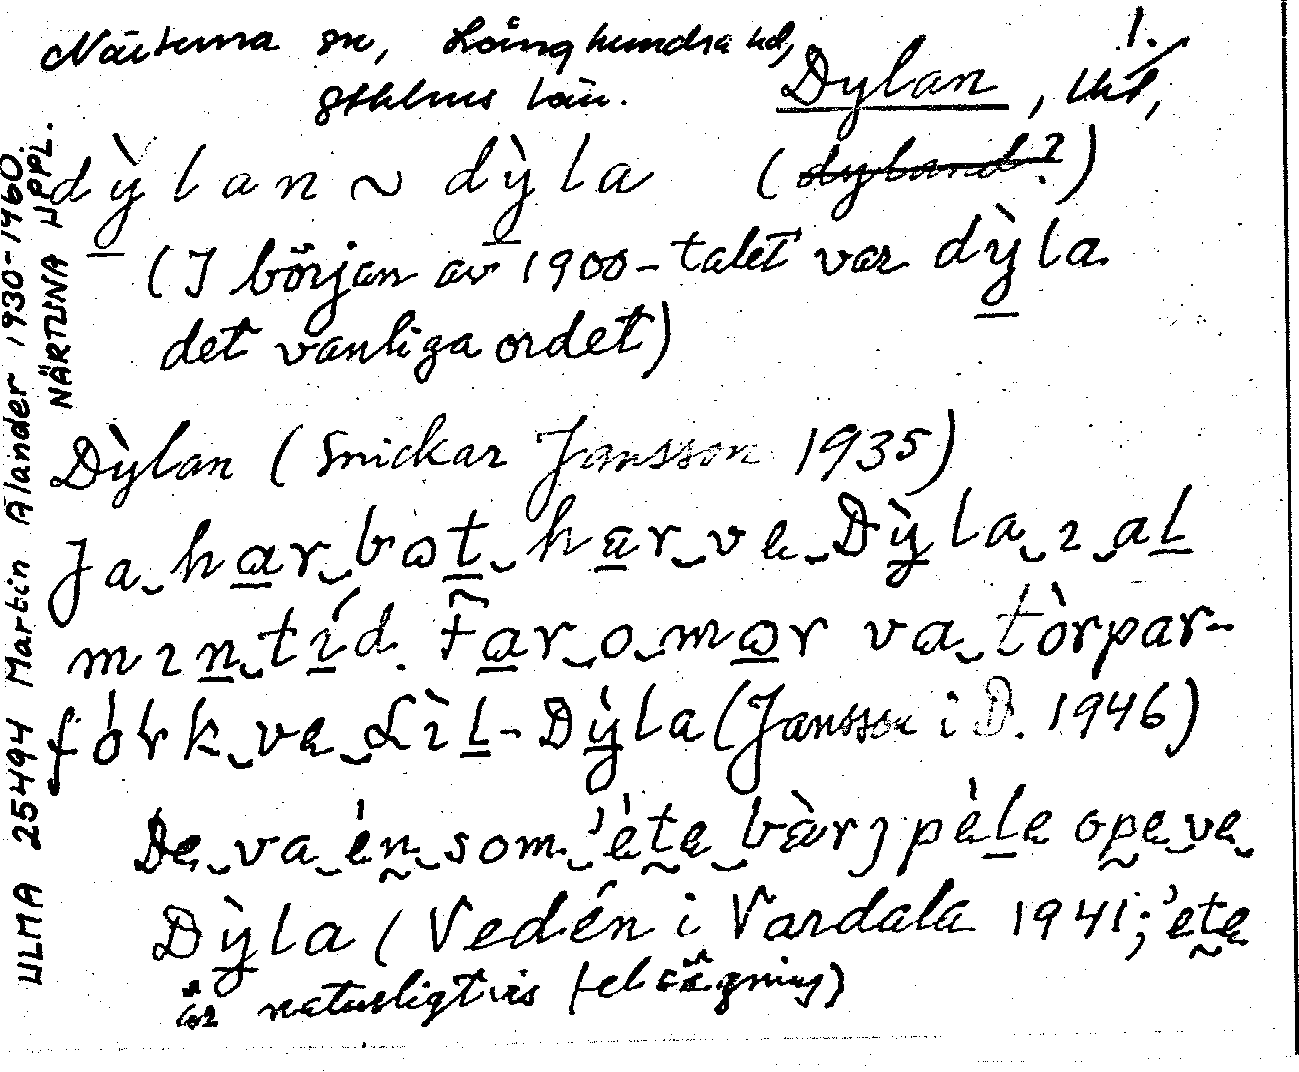 Närtuna sn, Långhundra hd,
Sthlms län.
1.
Dylan, Utl,
dỳlan ~ dỳla (dyland?)
(I början av 1900-talet var dỳla
det vanliga ordet)
Dỳlan (Snickar Jansson 1935)
Ja har bot hær ve Dỳla ı al
mın tíd. Far o mor va tòrpar-
fólk ve Lìl-Dỳla (Jansson i D. 1946)
De va én som 'éte bàrj pèle ope ve
Dỳla (Vedén i Vardala 1941; 'ete
är naturligtvis felsägning)
ULMA 25494 Martin Ålander 1930-1960.
NÄRTUNA UPPL.